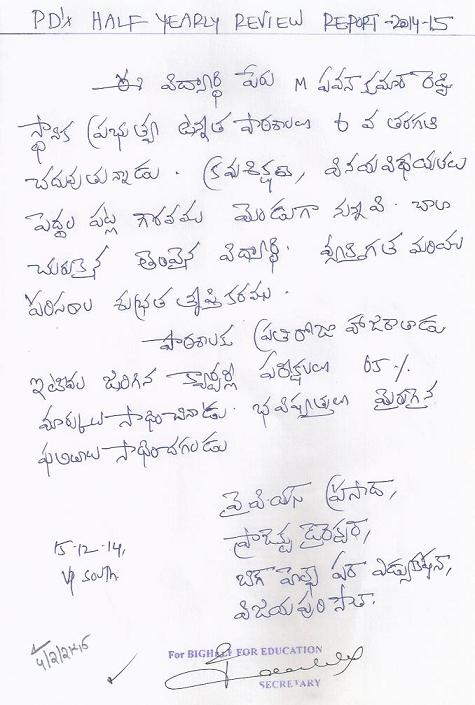 PD's HALF YEARLY REVIEW REPORT-2014-15
ఈ విద్యార్థి పేరు M పవన్ కుమార్ రెడ్డి
స్థానిక ప్రభుత్వ ఉన్నత పాఠశాలలో 6 వ తరగతి
చదువుతున్నాడు. క్రమశిక్షణ, వినయవిధేయతలు
పెద్దల పట్ల గౌరవము మెండుగా నున్నవి. చాలా
చురుకైన తెలివైన విద్యార్థి. వ్యక్తిగత మరియు
పరిసరాల శుభ్రత తృప్తికరము.
పాఠశాలకు ప్రతిరోజు హాజరౌతాడు
ఇటీవల జరిగిన క్వార్టర్లీ పరీక్షలలో 65%
మార్కులు సాధించినాడు. భవిష్యత్తులో మెరుగైన
ఫలితాలు సాధించగలడు
వై.వి.యస్ ప్రసాద్,
ప్రాజెక్టు డైరెక్టర్,
15-12-14, బిగ్ హెల్ప్ ఫర్ ఎడ్యుకేషన్,
VP South. విజయపురి సౌత్.
4/2/2015
For BIGHELP FOR EDUCATION
SECRETARY